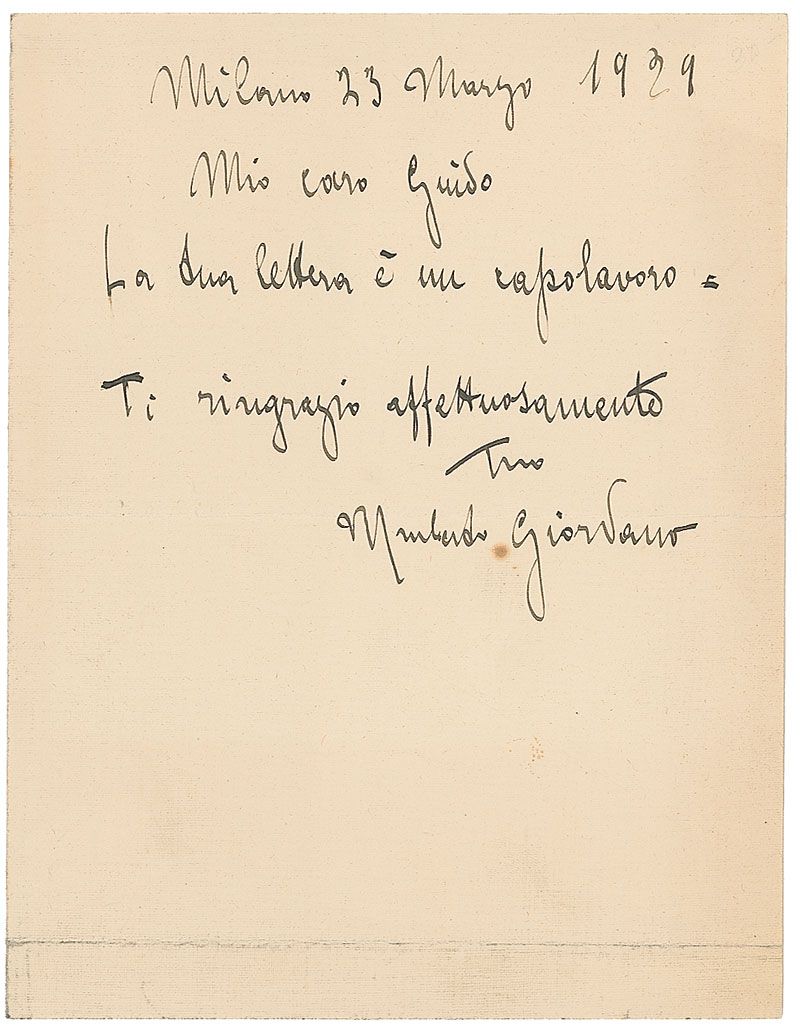 Milano 23 Marzo 1929
Mio caro Guido
La tua lettera è un capolavoro =
Ti ringrazio affettuosamente
Tuo
Umberto Giordano